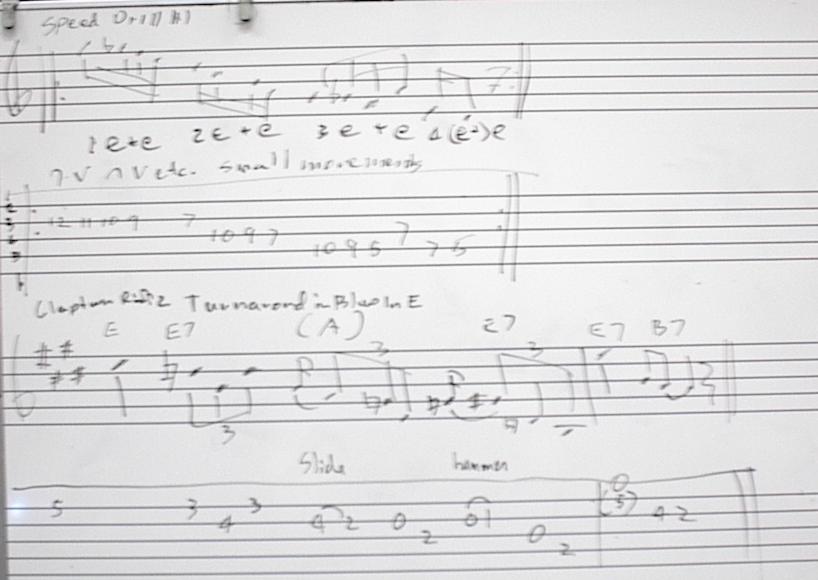 Speed Drill #1
1 e + e 2 e + e 3 e + e 4 (e +) e
V V etc. small movements
12 11 10 9 7 10 9 7 10 9 5 7 7 5
Clapton Turnarond in Blues In E
E E7 (A) E7 E7 B7
3 3 3
Slide hammer
5 3 4 3 4 2 0 2 0 1 0 2 0 (5) 4 2